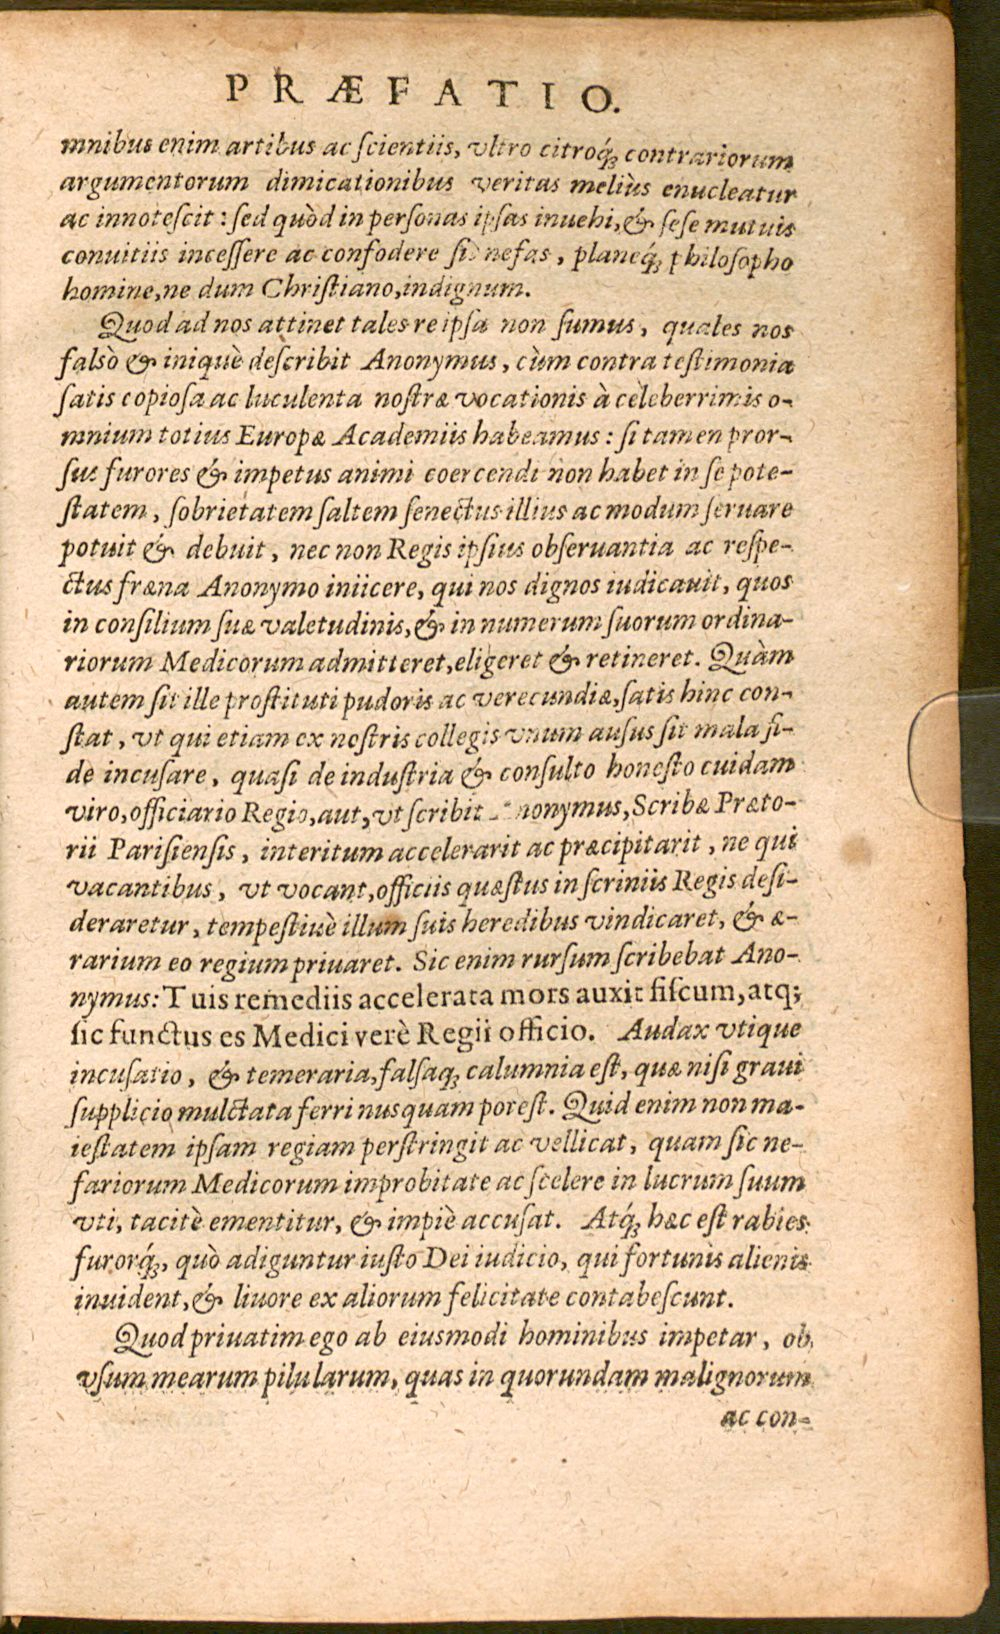 PRÆFATIO.
mnibus enim artibus ac scientiis, vltro citroq́; contrariorum
argumentorum dimicationibus veritas meliùs enucleatur
ac innotescit: sed quòd in personas ipsas inuehi, & sese mutuis
conuitiis incessere ac confodere sit nefas, planeq́; philosopho
homine, ne dum Christiano, indignum.
Quod ad nos attinet tales re ipsa non sumus, quales nos
falsò & iniquè describit Anonymus, cùm contra testimonia
satis copiosa ac luculenta nostræ vocationis à celeberrimis o-
mnium totius Europæ Academiis habeamus: si tamen pror-
sus furores & impetus animi coercendi non habet in se pote-
statem, sobrietatem saltem senectus illius ac modum seruare
potuit & debuit, nec non Regis ipsius obseruantia ac respe-
ctus fræna Anonymo iniicere, qui nos dignos iudicauit, quos
in consilium suæ valetudinis, & in numerum suorum ordina-
riorum Medicorum admitteret, eligeret & retineret. Quàm
autem sit ille prostituti pudoris ac verecundiæ, satis hinc con-
stat, vt qui etiam ex nostris collegis vnum ausus sit mala fi-
de incusare, quasi de industria & consulto honesto cuidam
viro, officiario Regio, aut, vt scribit Anonymus, Scribæ Præto-
rii Parisiensis, interitum accelerarit ac præcipitarit, ne qui
vacantibus, vt vocant, officiis quæstus in scriniis Regis desi-
deraretur, tempestiuè illum suis heredibus vindicaret, & æ-
rarium eo regium priuaret. Sic enim rursum scribebat Ano-
nymus: Tuis remediis accelerata mors auxit fiscum, atq;
sic functus es Medici verè Regii officio. Audax vtique
incusatio, & temeraria, falsaq; calumnia est, quæ nisi graui
supplicio mulctata ferri nusquam potest. Quid enim non ma-
iestatem ipsam regiam perstringit ac vellicat, quam sic ne-
fariorum Medicorum improbitate ac scelere in lucrum suum
vti, tacitè ementitur, & impiè accusat. Atq́; hæc est rabies
furorq́;, quò adiguntur iusto Dei iudicio, qui fortunis alienis
inuident, & liuore ex aliorum felicitate contabescunt.
Quod priuatim ego ab eiusmodi hominibus impetar, ob
vsum mearum pilularum, quas in quorundam malignorum
ac con-